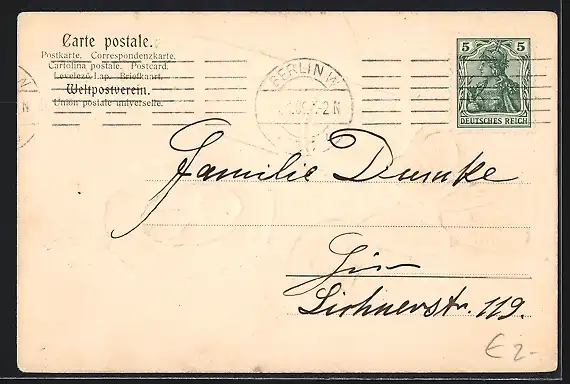 Carte postale.
Postkarte. Correspondenzkarte.
Cartolina postale. Postcard.
Levelező-Lap. Briefkaart.
Weltpostverein.
Union postale universelle.
BERLIN W
2 N
5 5
DEUTSCHES REICH
Familie Dumke
Hier
119.
€ 2-